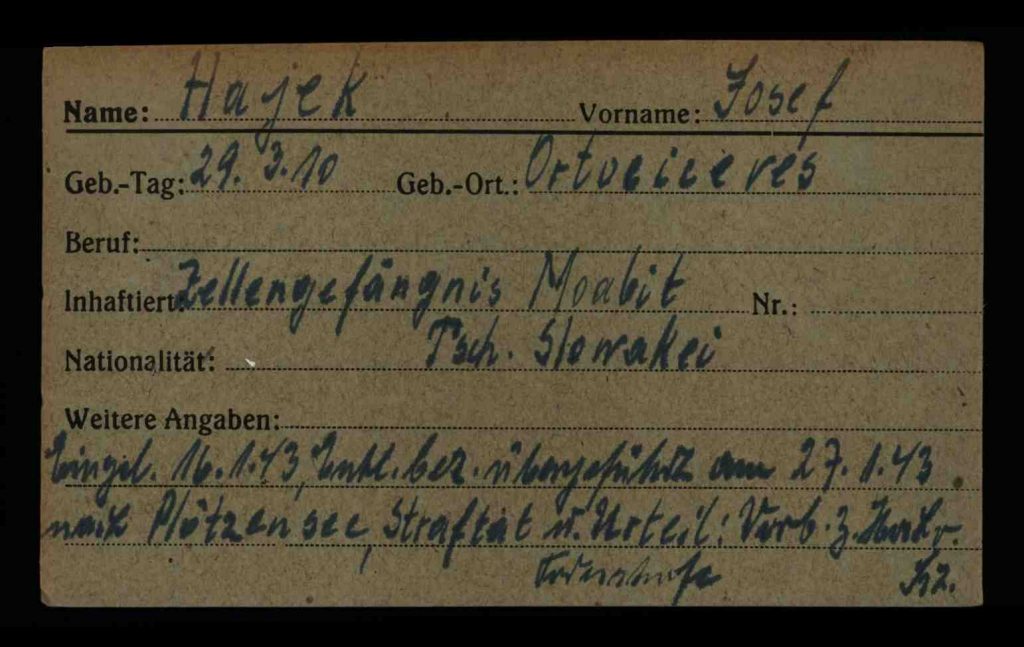 Name: Hajek Vorname: Josef
Geb.-Tag: 29. 3. 10 Geb.-Ort.:
Beruf:
Inhaftiert: Zellengefängnis Moabit Nr.:
Nationalität: Tsch. Slowakei
Weitere Angaben:
Eingel. 16. 1. 43, Entl. bez. übergeführt am 27. 1. 43
nach Plötzensee, Straftat u. Urteil: Vorb. z. Hochv.
Todesstrafe